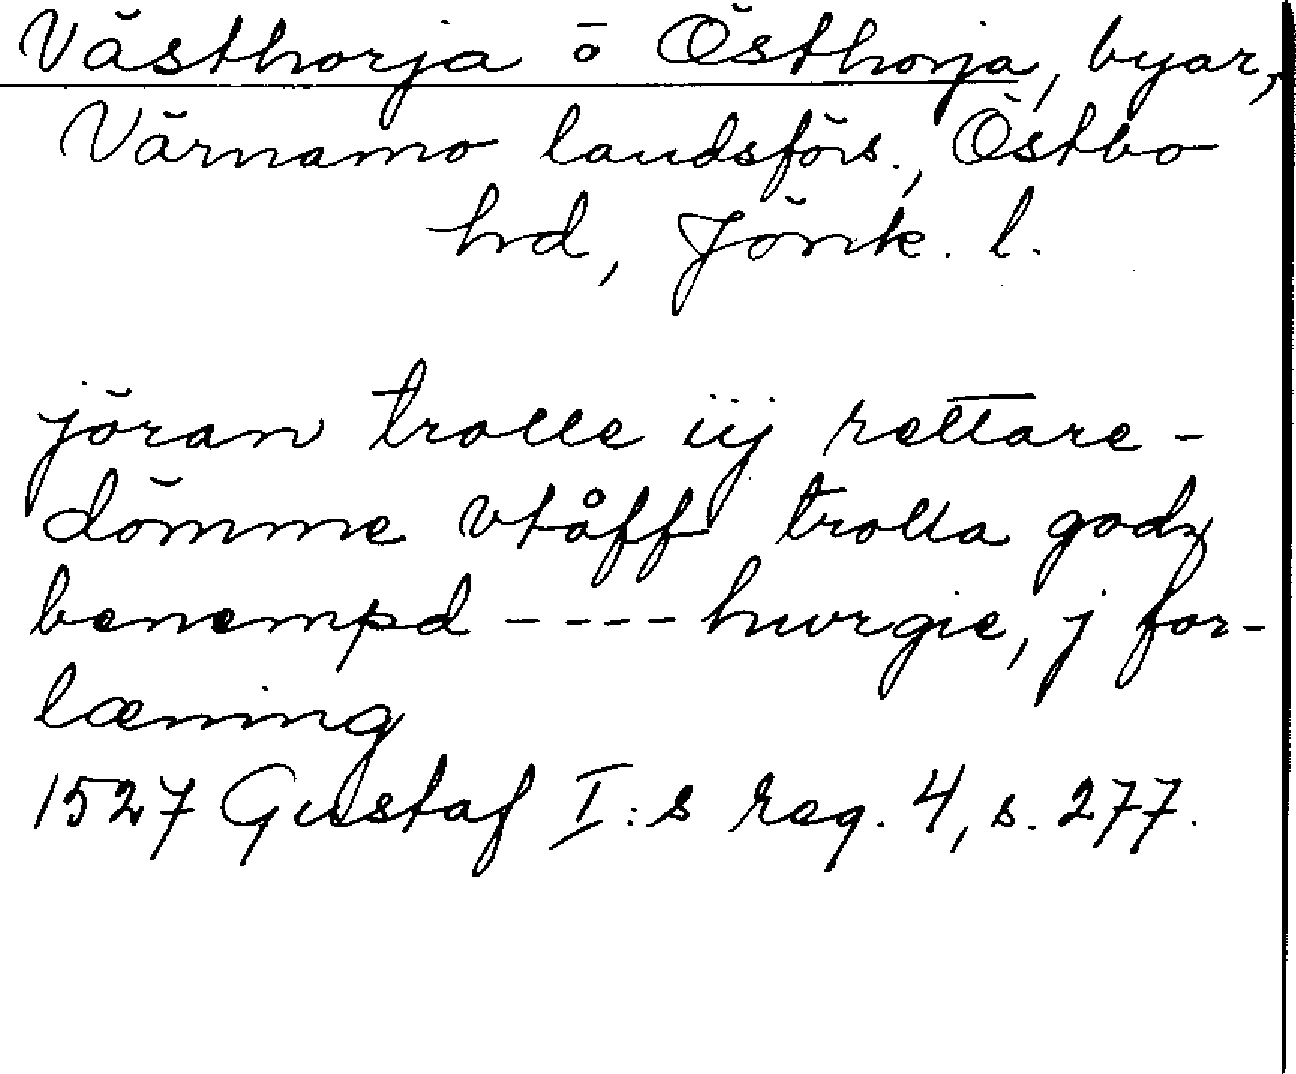 Västhorja o Östhorja, byar,
Värnamo landsförs., Östbo
hd, Jönk. l.
jöran trolle iij rettare-
dömme vtåff trolla godz
benempd ---- hwrgie, j for-
læning
1527 Gustaf I:s reg. 4, s. 277.